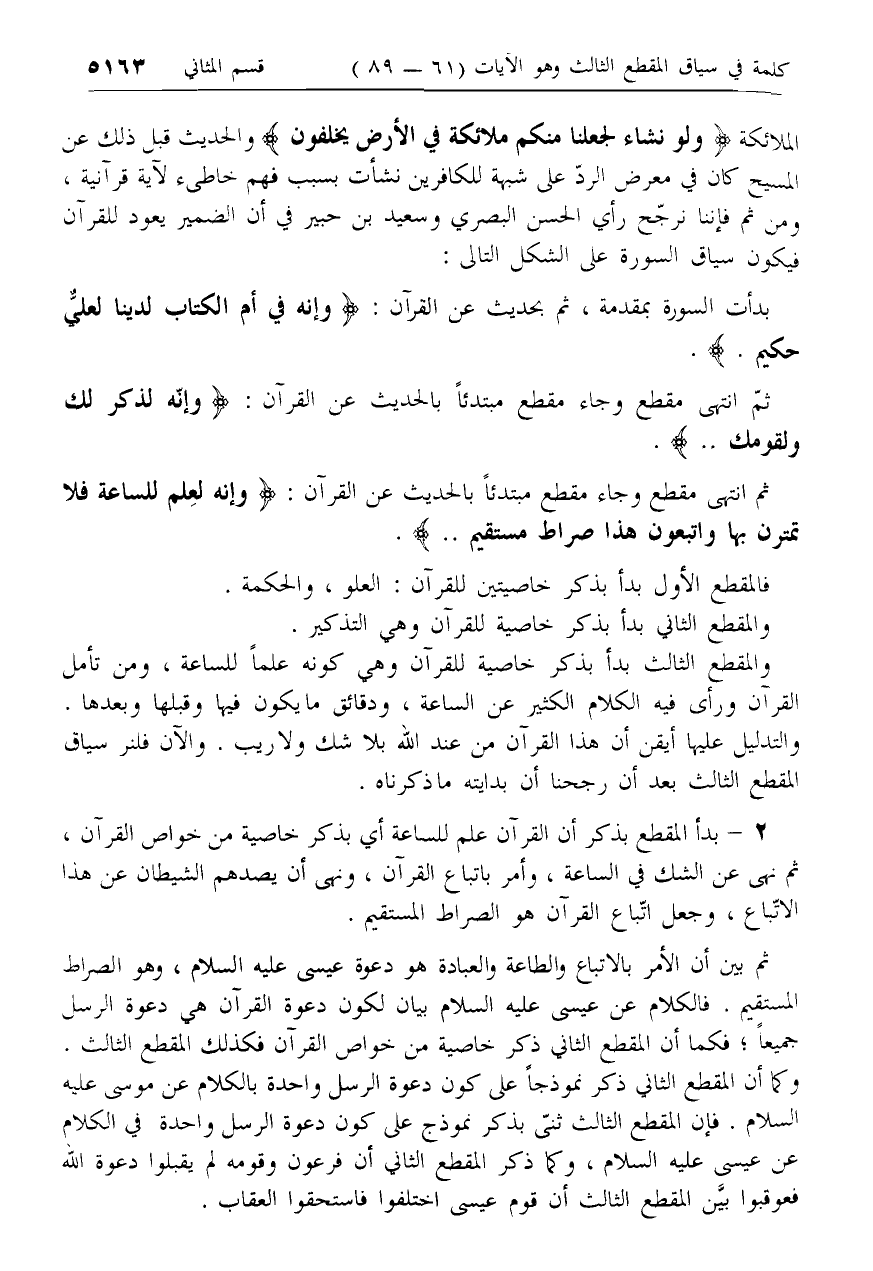 كلمة في سياق المقطع الثالث وهو الآيات (٦١ — ٨٩ ) قسم المثاني ٥١٦٣
الملائكة ﴿ ولو نشاء لجعلنا منكم ملائكة في الأرض يخلفون ﴾ والحديث قبل ذلك عن
المسيح كان في معرض الردّ على شبهة للكافرين نشأت بسبب فهم خاطىء لآية قرآنية ،
ومن ثم فإننا نرجّح رأي الحسن البصري وسعيد بن حبير في أن الضمير يعود للقرآن
فيكون سياق السورة على الشكل التالى :
بدأت السورة بمقدمة ، ثم بحديث عن القرآن : ﴿ وإنه في أم الكتاب لدينا لعليٌّ
حكيم . ﴾ .
ثمّ انتهى مقطع وجاء مقطع مبتدئاً بالحديث عن القرآن : ﴿ وإنّه لذكر لك
ولقومك .. ﴾ .
ثم انتهى مقطع وجاء مقطع مبتدئاً بالحديث عن القرآن : ﴿ وإنه لعِلم للساعة فلا
تمترن بها واتبعون هذا صراط مستقيم .. ﴾ .
فالمقطع الأول بدأ بذكر خاصيتين للقرآن : العلو ، والحكمة .
والمقطع الثاني بدأ بذكر خاصية للقرآن وهي التذكير .
والمقطع الثالث بدأ بذكر خاصية للقرآن وهي كونه علماً للساعة ، ومن تأمل
القرآن ورأى فيه الكلام الكثير عن الساعة ، ودقائق مايكون فيها وقبلها وبعدها .
والتدليل عليها أيقن أن هذا القرآن من عند الله بلا شك ولاريب . والآن فلنر سياق
المقطع الثالث بعد أن رجحنا أن بدايته ماذكرناه .
٢ – بدأ المقطع بذكر أن القرآن علم للساعة أي بذكر خاصية من خواص القرآن ،
ثم نهى عن الشك في الساعة ، وأمر باتباع القرآن ، ونهى أن يصدهم الشيطان عن هذا
الاتّباع ، وجعل اتّباع القرآن هو الصراط المستقيم .
ثم بين أن الأمر بالاتباع والطاعة والعبادة هو دعوة عيسى عليه السلام ، وهو الصراط
المستقيم . فالكلام عن عيسى عليه السلام بيان لكون دعوة القرآن هي دعوة الرسل
جميعاً ؛ فكما أن المقطع الثاني ذكر خاصية من خواص القرآن فكذلك المقطع الثالث .
وكما أن المقطع الثاني ذكر نموذجاً على كون دعوة الرسل واحدة بالكلام عن موسى عليه
السلام . فإن المقطع الثالث ثنىّ بذكر نموذج على كون دعوة الرسل واحدة في الكلام
عن عيسى عليه السلام ، وكما ذكر المقطع الثاني أن فرعون وقومه لم يقبلوا دعوة الله
فعوقبوا بيَّن المقطع الثالث أن قوم عيسى اختلفوا فاستحقوا العقاب .